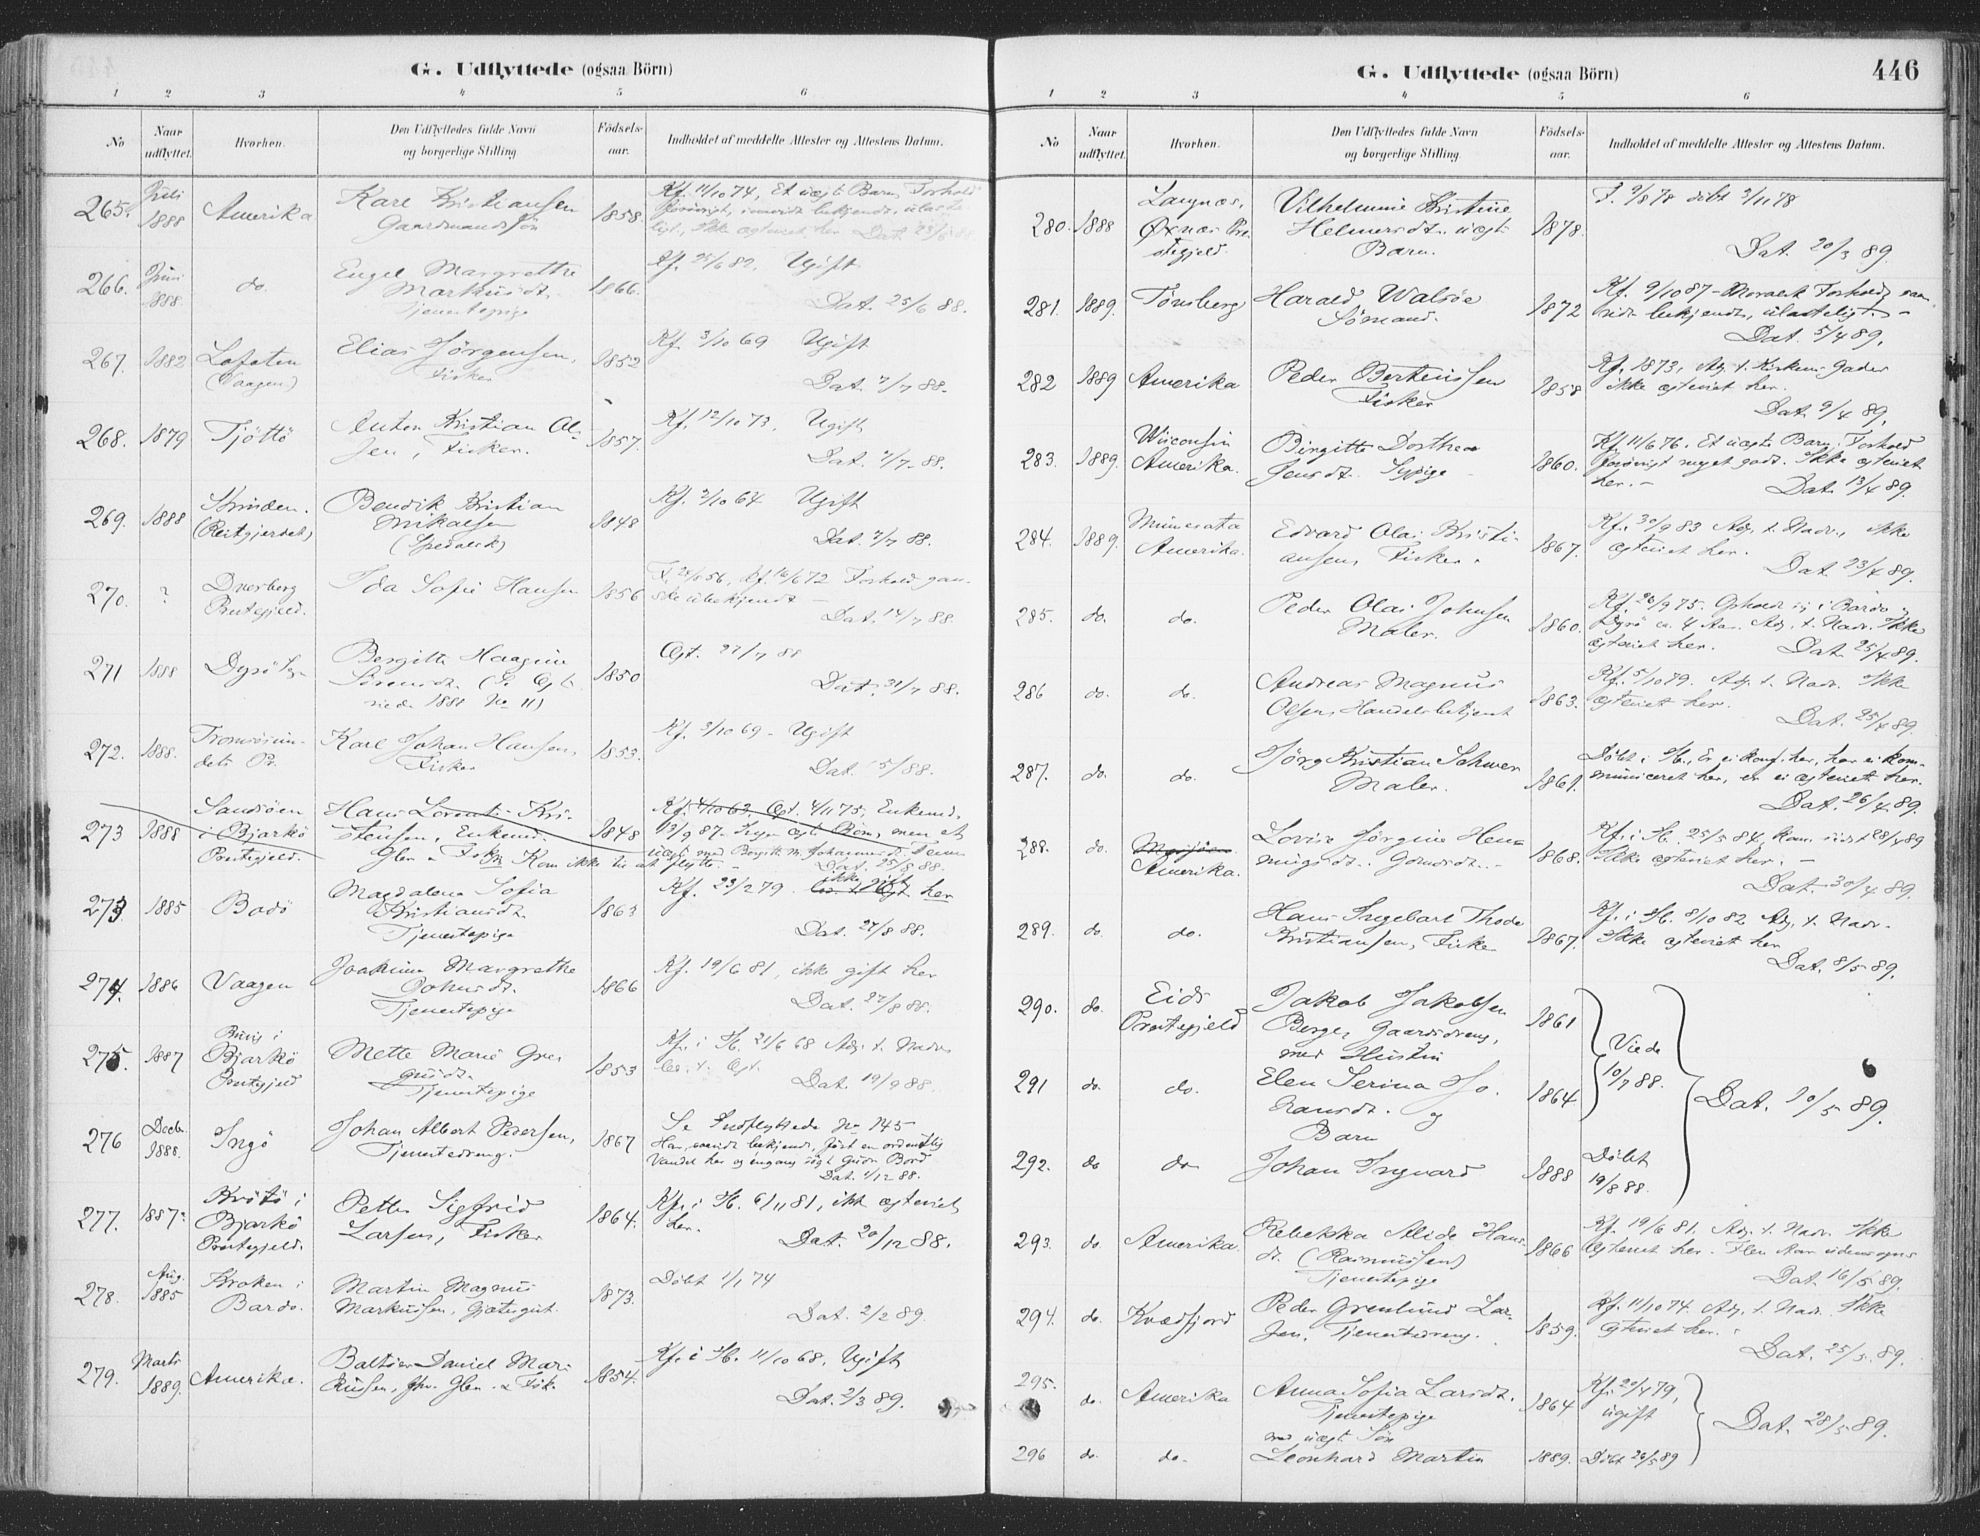 G. Udflyttede (ogsaa Börn)
1 2 3 4 5 6
No
Naar udflyttet.
Hvorhen.
Den Udflyttedes fulde Navn og borgerlige Stilling
Födsels-aar.
Indholdet af meddelte Attester og Attestens Datum.
265. Juli 1888 Amerika Karl Kristiansen 1858. Kf. 11/10 74, Et uægt Barn, Forhold
Gaardmandssön
266. Juni 1888 do. Engel Margrethe 1866. Kf. 25/6 82. Ugift
Markusdt.
Tjenestepige Dat. 25/6 88.
267. 1882 Lofoten Elias Jörgensen, 1852 Kf. 3/10 69 Ugift
(Vaagen) Fisker Dat. 7/7 88.
268. 1879 Tjöttö Anton Kristian Ol- 1857. Kf. 12/10 73. Ugift
sen, Fisker. Dat. 7/7 88.
269. 1888 Strinden. Bendik Kristian 1848 Kf. 2/10 64 Ugift
(Reitgjerdet) Mikalsen
(Spedalsk) Dat. 7/7 88.
270. ? Dverberg Ida Sofie Hansen 1856 Kf. 16/6 72 Forhold gan-
Prestegjeld. ske ubekjendt
Dat. 14/7 88.
271 1888 Dyrö Bergitte Haagine 1850 Ægt. 22/7 88
Sörensdt.
viede 1881 No 11) Dat. 31/7 88.
272. 1888. Tromsösun- Karl Johan Hansen, 1853. Kf. 3/10 69 - Ugift
dets Pr. Fisker Dat. 15/8 88.
273 1888 Sandsöen Hans Lorents Kri- 1848 Kf. 4/10 63. Ægt. 4/11 75, Enkemd.
i Bjarkö stensen, Enkemd. 13/9 87.
Prestegjeld. Kom ikke til at flytte - Dat. 25/8 88.
273. 1885 Bodö Magdalena Sofia 1863 Kf. 23/2 79. ikke gift her
Kristiansdt.
Tjenestepige Dat. 27/8 88.
274. 1886 Vaagen Joakima Margrethe 1866 Kf. 19/6 81, ikke gift her
Johnsdt.
Tjenestepige Dat. 27/8 88.
275 1887 Bjarkö Mette Marie Gre- 1853 Kf. i H. 21/6 68 Adg. t. Nadv.
Prestegjeld gersdt.
Tjenestepige Dat. 19/9 88.
276 Decb. 1888. Ingö Johan Albert Pedersen, 1867 Se Indflyttede No 145
Tjenestedreng. Har, saavidt bekjendt, fört en ordentlig
Vandel her og engang sögt Guds Bord
Dat. 1/12 88.
277. 1887? Krötö i Petter Sigfrid 1864. Kf. i H. 6/11 81, ikke ægteviet
Bjarkö Larsen, Fisker her.
Prestegjeld. Dat. 20/12 88.
278. Aug. 1885 Kroken i Martin Magnus 1873. Döbt 1/1 74
Bardo. Markussen, Gjætergut. Dat. 2/2 89.
279. Marts 1889. Amerika. Baltser Daniel Mar- 1854. Kf. i H. 11/10 68, Ugift
kussen, Dat. 2/3 89.
G. Udflyttede (ogsaa Börn)
446
1 2 3 4 5 6
No
Naar udflyttet.
Hvorhen.
Den Udflyttedes fulde Navn og borgerlige Stilling
Födsels-aar.
Indholdet af meddelte Attester og Attestens Datum.
280. 1888 Langnes, Vilhelmine Kristine 1878. F. 9/8 78 döbt 3/11 78
Øxnes Pre- Helmersdt. uægt
stegjeld. Barn. Dat. 20/3 89.
281. 1889. Tönsberg Harald Walsöe 1872 Kf. 9/10 87 - Moralsk Forhold, saa-
Sömand. vidt bekjendt, ulasteligt -
Dat. 5/4 89.
282 1889 Amerika Peder Berteussen 1858 Kf. 1873, Adg. t. Kirkens Goder
Fisker ikke ægteviet her.
Dat. 9/4 89.
283. 1889. Wisconsin Birgitte Dorthea 1860. Kf. 11/6 76. Et uægte Barn. Forhold
Amerika. Jensdt. Sypige - forövrigt meget godt. Ikke ægteviet
her. - Dat. 13/4 89.
284. 1889. Minnesota Edvard Olai Kristi- 1867. Kf. 30/9 83 Adg. t. Nadv., ikke
Amerika. ansen, Fisker. ægteviet her.
Dat. 23/4 89.
285. do. do. Peder Olai Johnsen 1860. Kf. 26/9 75. Opholdt sig i Bardo og
Maler. Dyrö ca. 4 Aar. Adg. t. Nadv. Ikke
ægteviet her. Dat. 25/4 89.
286 do. do. Andreas Magnus 1863. Kf. 5/10 79. Adg. t. Nadv. Ikke
Olsen, Handelsbetjent ægteviet her.
Dat. 25/4 89.
287. do. do. Jörg Kristian Schwer 1861. Döbt i H., Er ei konf. her, har ei kom-
Maler. municeret her, er ei ægteviet her.
Dat. 26/4 89.
288. do. Amerika. Lovise Jörgine Hen- 1868. Kf. i H. 25/5 84, kom. sidst 28/4 89
ningsdt. Gaardsdt. Ikke ægteviet her. -
Dat. 30/4 89.
289. do. do. Hans Ingebart Thode 1867. Kf. i H. 8/10 82 Adg. t. Nadv.
Kristiansen, Fisker Ikke ægteviet her
Dat. 8/5 89.
290. do. Eids Jakob Jakobsen 1861 Viede
Prestegjeld Berge, Gaardsdreng, 10/7 88.
med Hustru
291 do. do. Elen Serina Jo- 1864. Dat. 10/5 89.
hansdt. og
Barn
292. do do Johan Ingvard 1888 Döbt
19/8 88.
293. do. Amerika. Rebekka Alide Hans- 1866 Kf. 19/6 81. Adg. t. Nadv. Ikke
dt. (Rasmussen) ægteviet her. Flere Aar udensogns
Tjenestepige Dat. 16/5 89.
294. do. Kvædfjord Peder Grenlund Lar- 1859. Kf. 11/10 74. Adg. t. Nadv. Ikke
sen, Tjenestedreng. ægteviet her.
Dat. 25/5 89.
295. do. Amerika Anna Sofia Larsdt. 1864 Kf. 20/4 79,
Tjenestepige ugift Dat. 28/5 89.
med uægt. Sön
296 do. do. Leonhard Martin 1889. Döbt 26/5 89